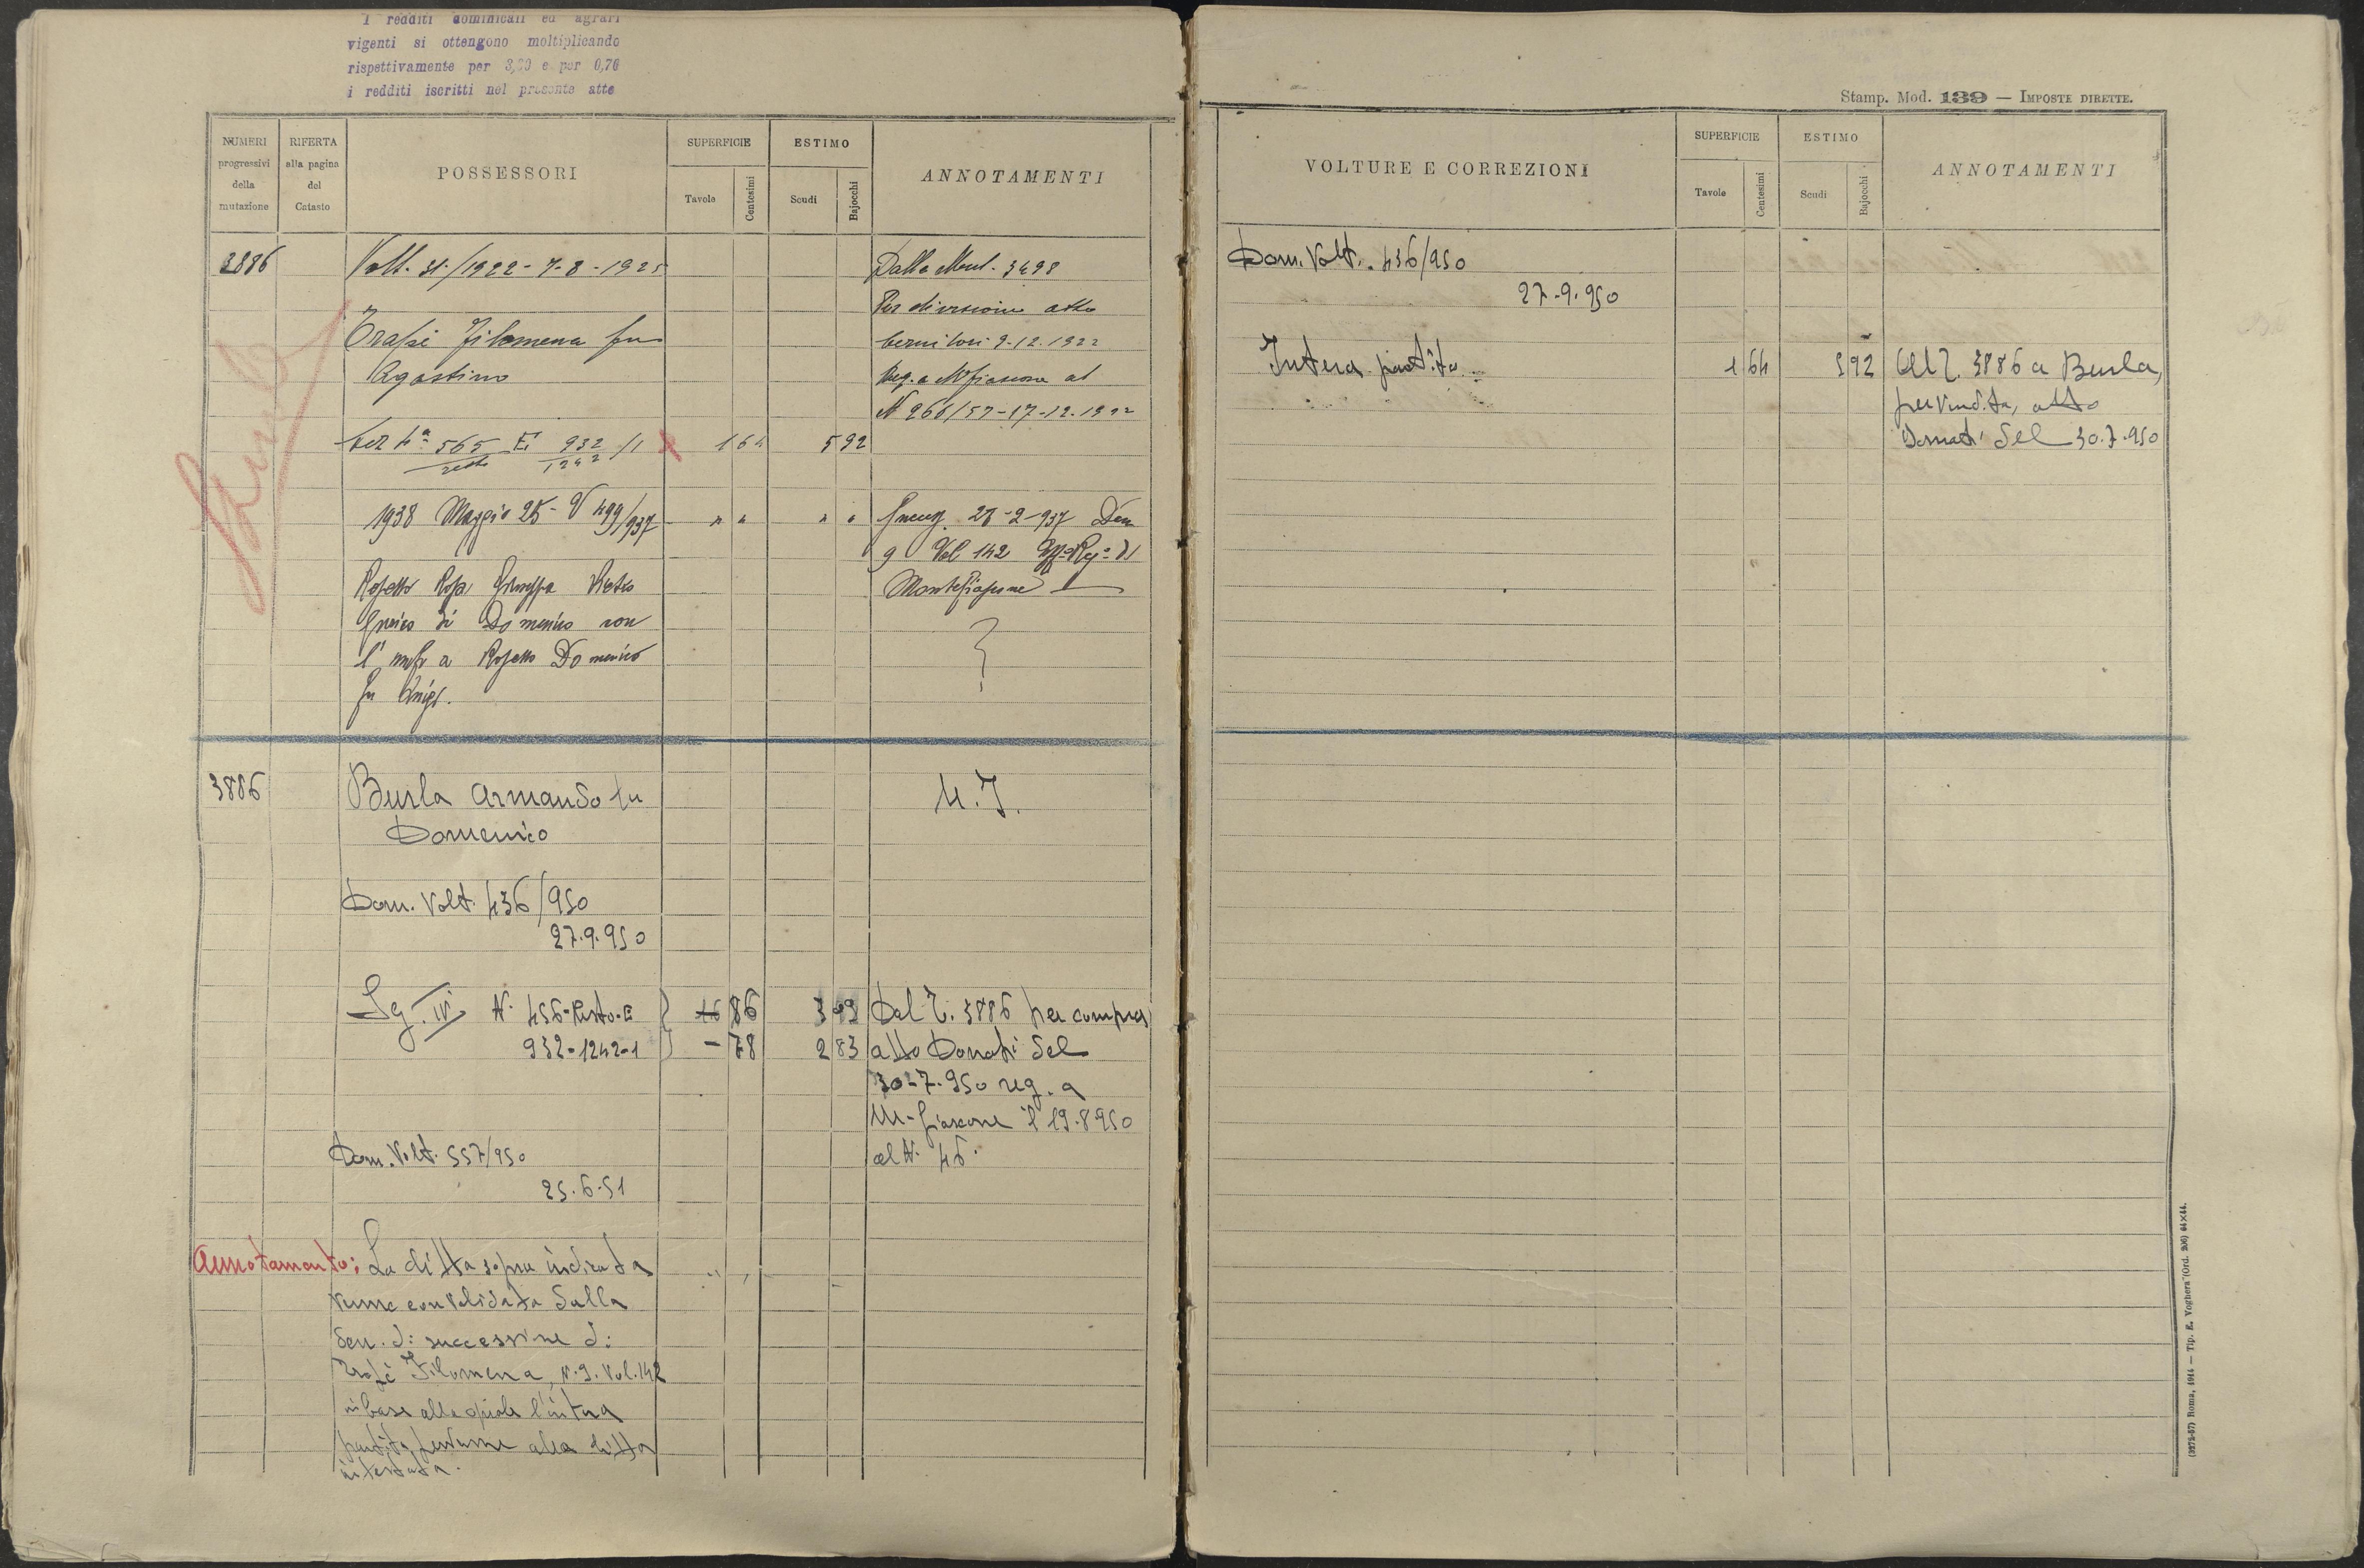 I redditi dominicali ed agrari
vigenti si ottengono moltiplicando
rispettivamente per 3,20 e per 0,76
i redditi iscritti nel presente atto
NUMERI progressivi della mutazione
RIFERTA alla pagina del Catasto
POSSESSORI
SUPERFICIE
Tavole
Centesimi
ESTIMO
Scudi
Bajocchi
ANNOTAMENTI
3886
Volt. 31/1922 - 7-8-1925
Dalla Mut. 3498
Per divisione atto
Trapè Filomena fu
9-12-1922
Agostino
Reg. a Mfiascone al
N 266/57-17-12-1922
Ter 4a 565 resto E 932/1242 /1
1 64
5 92
1938 Maggio 25 - V 499/937
" "
" "
Success. 28-2-937 Den
9 Vol 142 Uff Reg di
Rosetto Rosa Giuseppa
Montefiascone
di Domenico con
l'usuf a Rosetto Domenico
fu Luigi.
3886
Burla Armando fu
Domenico
M. I.
Dom. Volt. 436/950
27.9.950
Sez. IV N. 456-Resto-E
16 86
3 09
Dal N. 3886 per compra
932-1242-1
- 78
2 83
atto Donati del
30-7-950 reg. a
M-fiascone il 19.8.950
al N. 46.
Dom. Volt. 557/950
25.6.51
Annotamento: La ditta sopra indicata
viene convalidata dalla
den. di successione di
Trapè Filomena, N. 9. Vol. 142
in base alla quale l'intera
partita pervenne alla ditta
intestata.
Stamp. Mod. 139 — IMPOSTE DIRETTE.
VOLTURE E CORREZIONI
SUPERFICIE
Tavole
Centesimi
ESTIMO
Scudi
Bajocchi
ANNOTAMENTI
Dom. Volt. 436/950
27.9.950
Intera partita
1 64
5 92
Al N. 3886 a Burla,
per vendita, atto
Donati del 30.7.950
(3272-57) Roma, 1914 — Tip. E. Voghera (Ord. 206) 64×44.